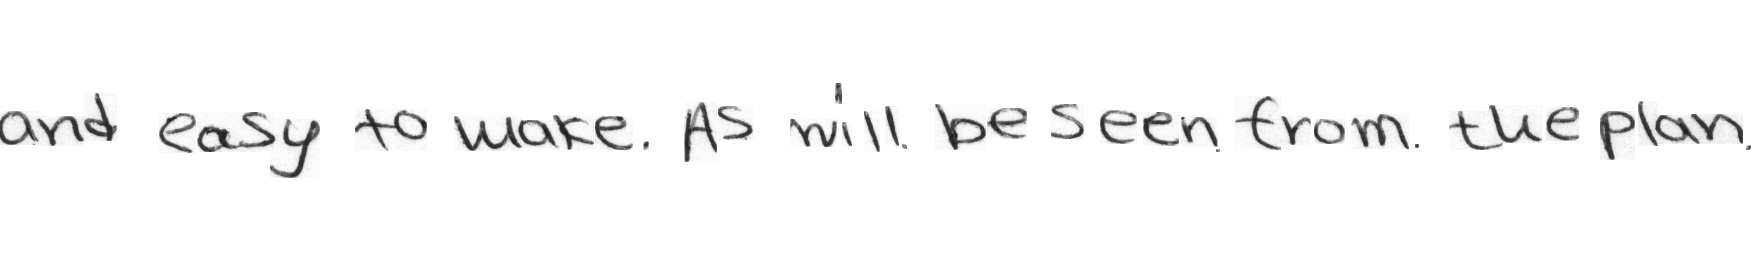 and easy to make. As will be seen from the plan,